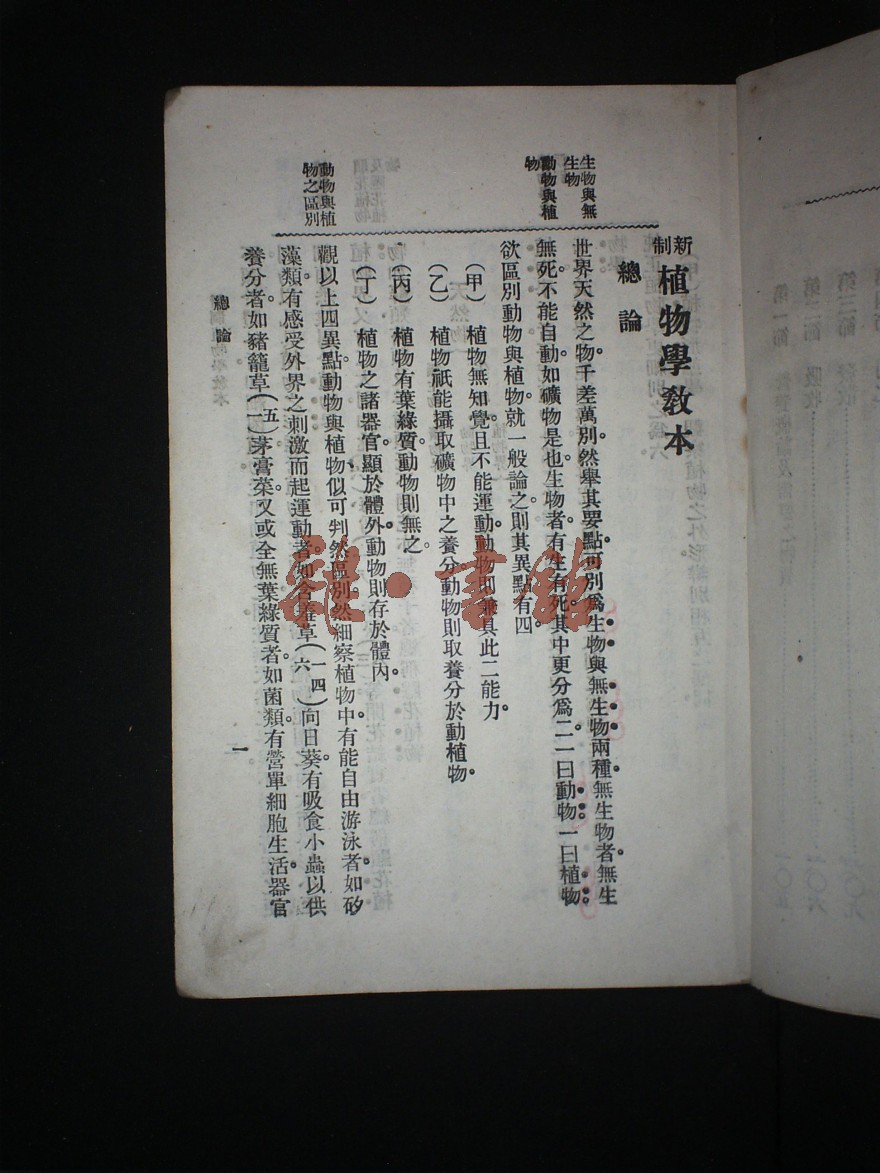 新制植物學教本
總論
生物與無
生物
世界天然之物。千差萬別。然舉其要點。可別爲生物與無生物兩種。無生物者。無生
動物與植
物
無死。不能自動。如礦物是也。生物者。有生有死。其中更分爲二。一曰動物。一曰植物。
欲區別動物與植物。就一般論之。則其異點有四。
（甲）　植物無知覺。且不能運動。動物則兼具此二能力。
（乙）　植物祇能攝取礦物中之養分。動物則取養分於動植物。
（丙）　植物有葉綠質。動物則無之。
（丁）　植物之諸器官。顯於體外。動物則存於體內。
動物與植
物之區別
觀以上四異點。動物與植物。似可判然區別。然細察植物中。有能自由游泳者。如矽
藻類。有感受外界之刺激而起運動者。如含羞草（一四六）向日葵。有吸食小蟲以供
養分者。如豬籠草（一五）茅膏菜。又或全無葉綠質者。如菌類。有營單細胞生活。器官
總論
一
雜·書館